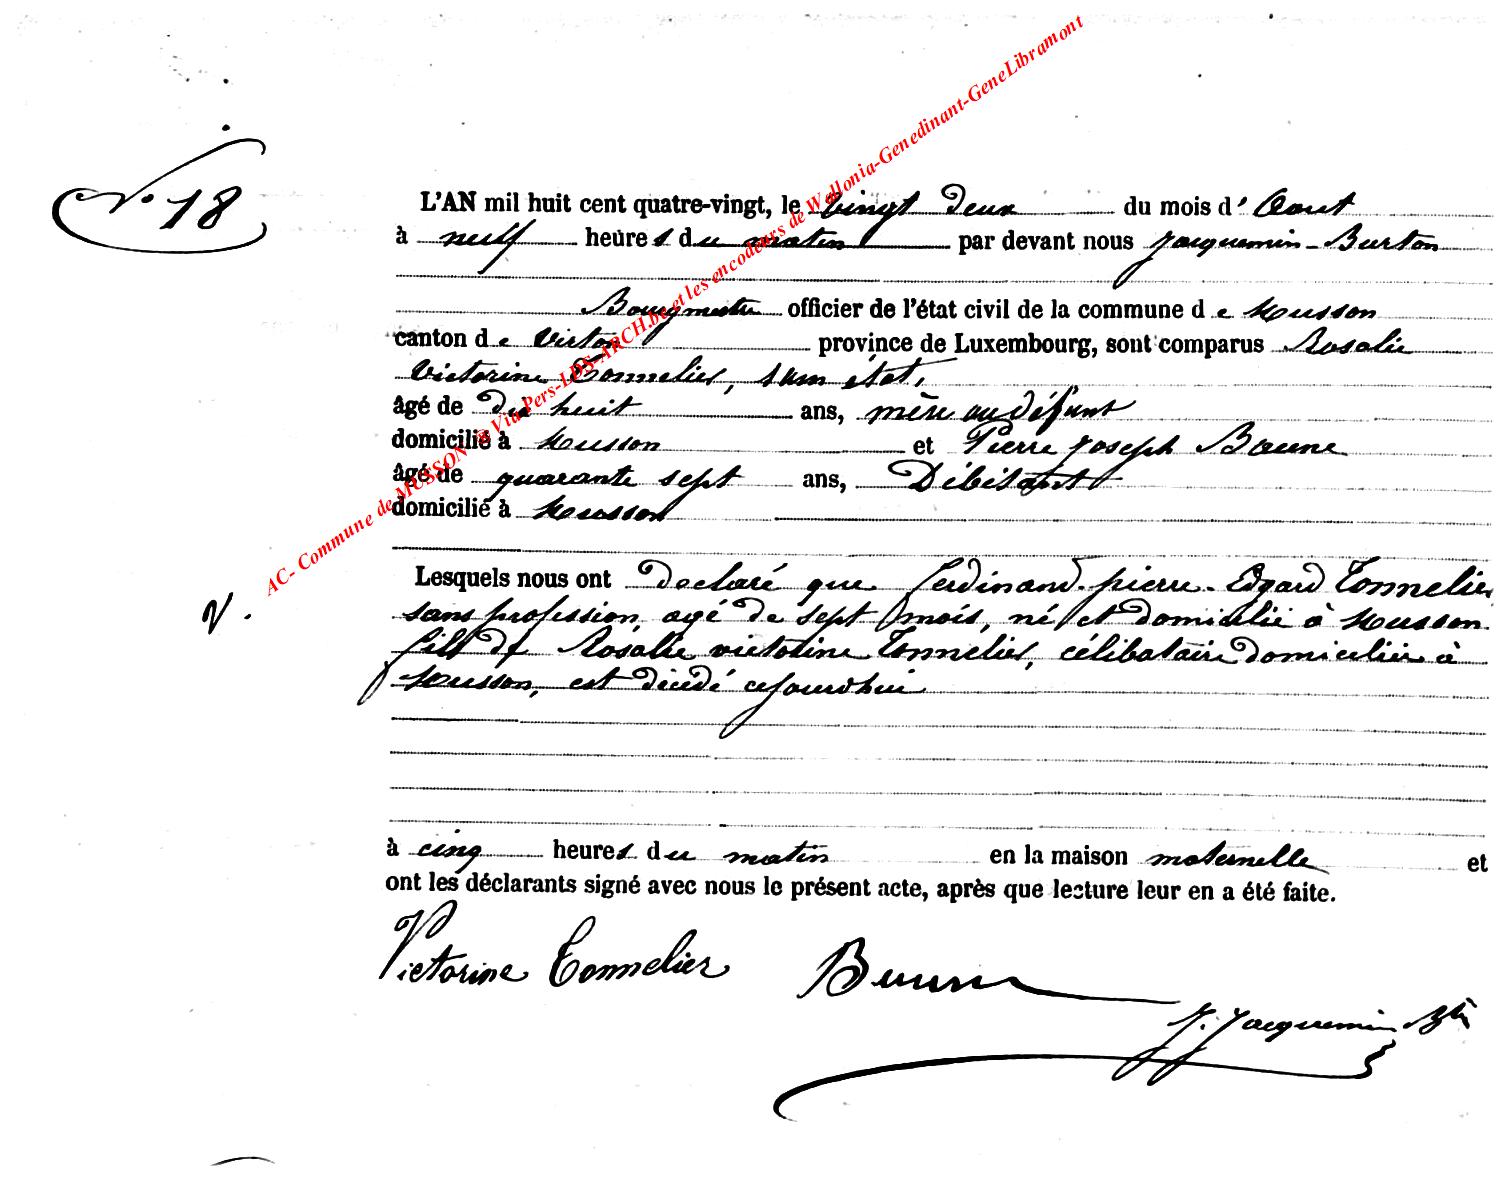 N° 18
L'AN mil huit cent quatre-vingt, le vingt deux du mois d'Aout
à neuf heures du matin par devant nous Jacquemin-Burton
Bourgmestre officier de l'état civil de la commune de Musson
canton de Virton province de Luxembourg, sont comparus Rosalie
Victorine Tonnelier, sans état,
âgé de dix huit ans, mère au défunt
domicilié à Musson et Pierre Joseph
âgé de quarante sept ans, Débitant
domicilié à Musson
Lesquels nous ont declaré que Ferdinand-pierre-Edgard Tonnelier
sans profession, agé de sept mois, né et domicilié à Musson
fils de Rosalie victorine Tonnelier, célibataire domiciliée à
Musson, est décédé cejourdhui
à cinq heures du matin en la maison maternelle et
ont les déclarants signé avec nous le présent acte, après que lecture leur en a été faite.
V.
Victorine Tonnelier
J. Jacquemin Btn
AC- Commune de MUSSON @ Via Pers-LDS-ARCH.be et les encodeurs de Wallonia-Genedinant-GeneLibramont